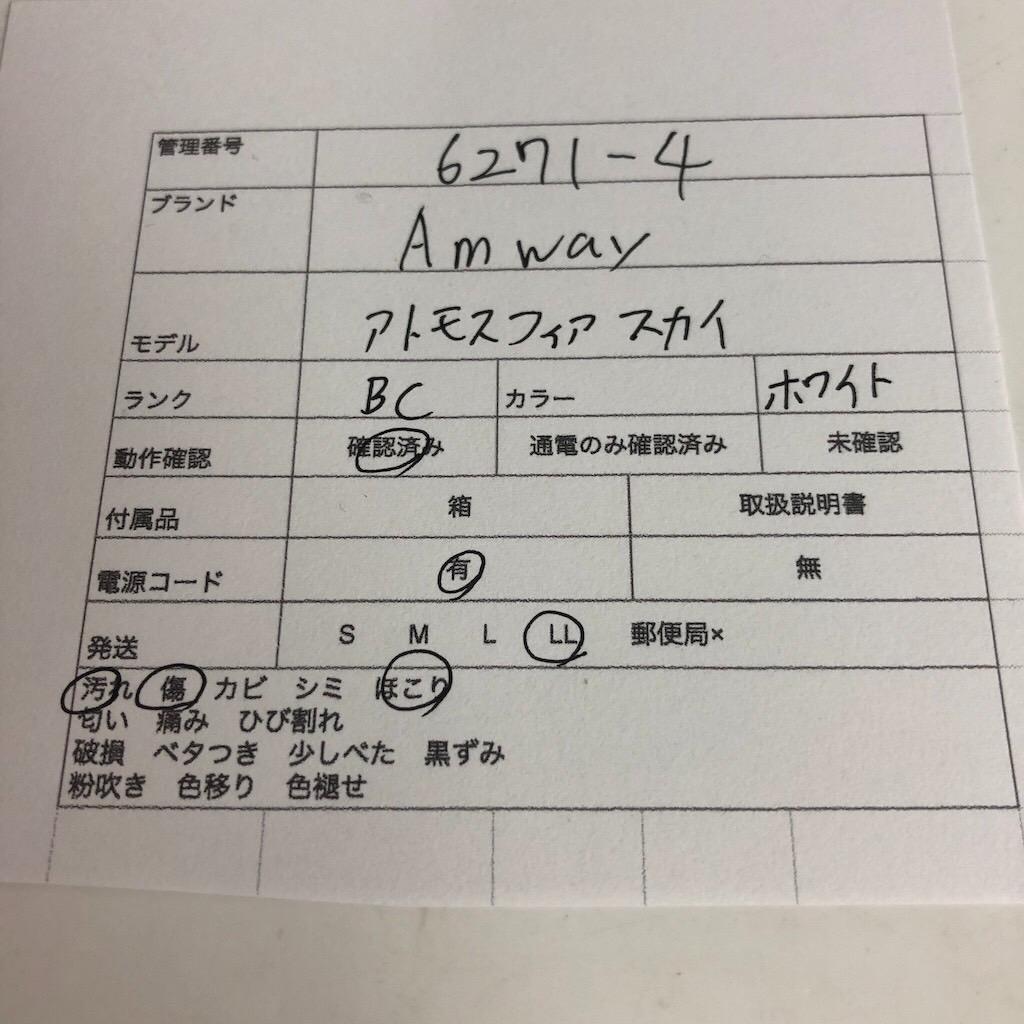 管理番号 6271-4
ブランド Amway
モデル アトモスフィア スカイ
ランク BC カラー ホワイト
動作確認 確認済み 通電のみ確認済み 未確認
付属品 箱 取扱説明書
電源コード 有 無
発送 S M L LL 郵便局×
汚れ 傷 カビ シミ ほこり
匂い 痛み ひび割れ
破損 ベタつき 少しべた 黒ずみ
粉吹き 色移り 色褪せ